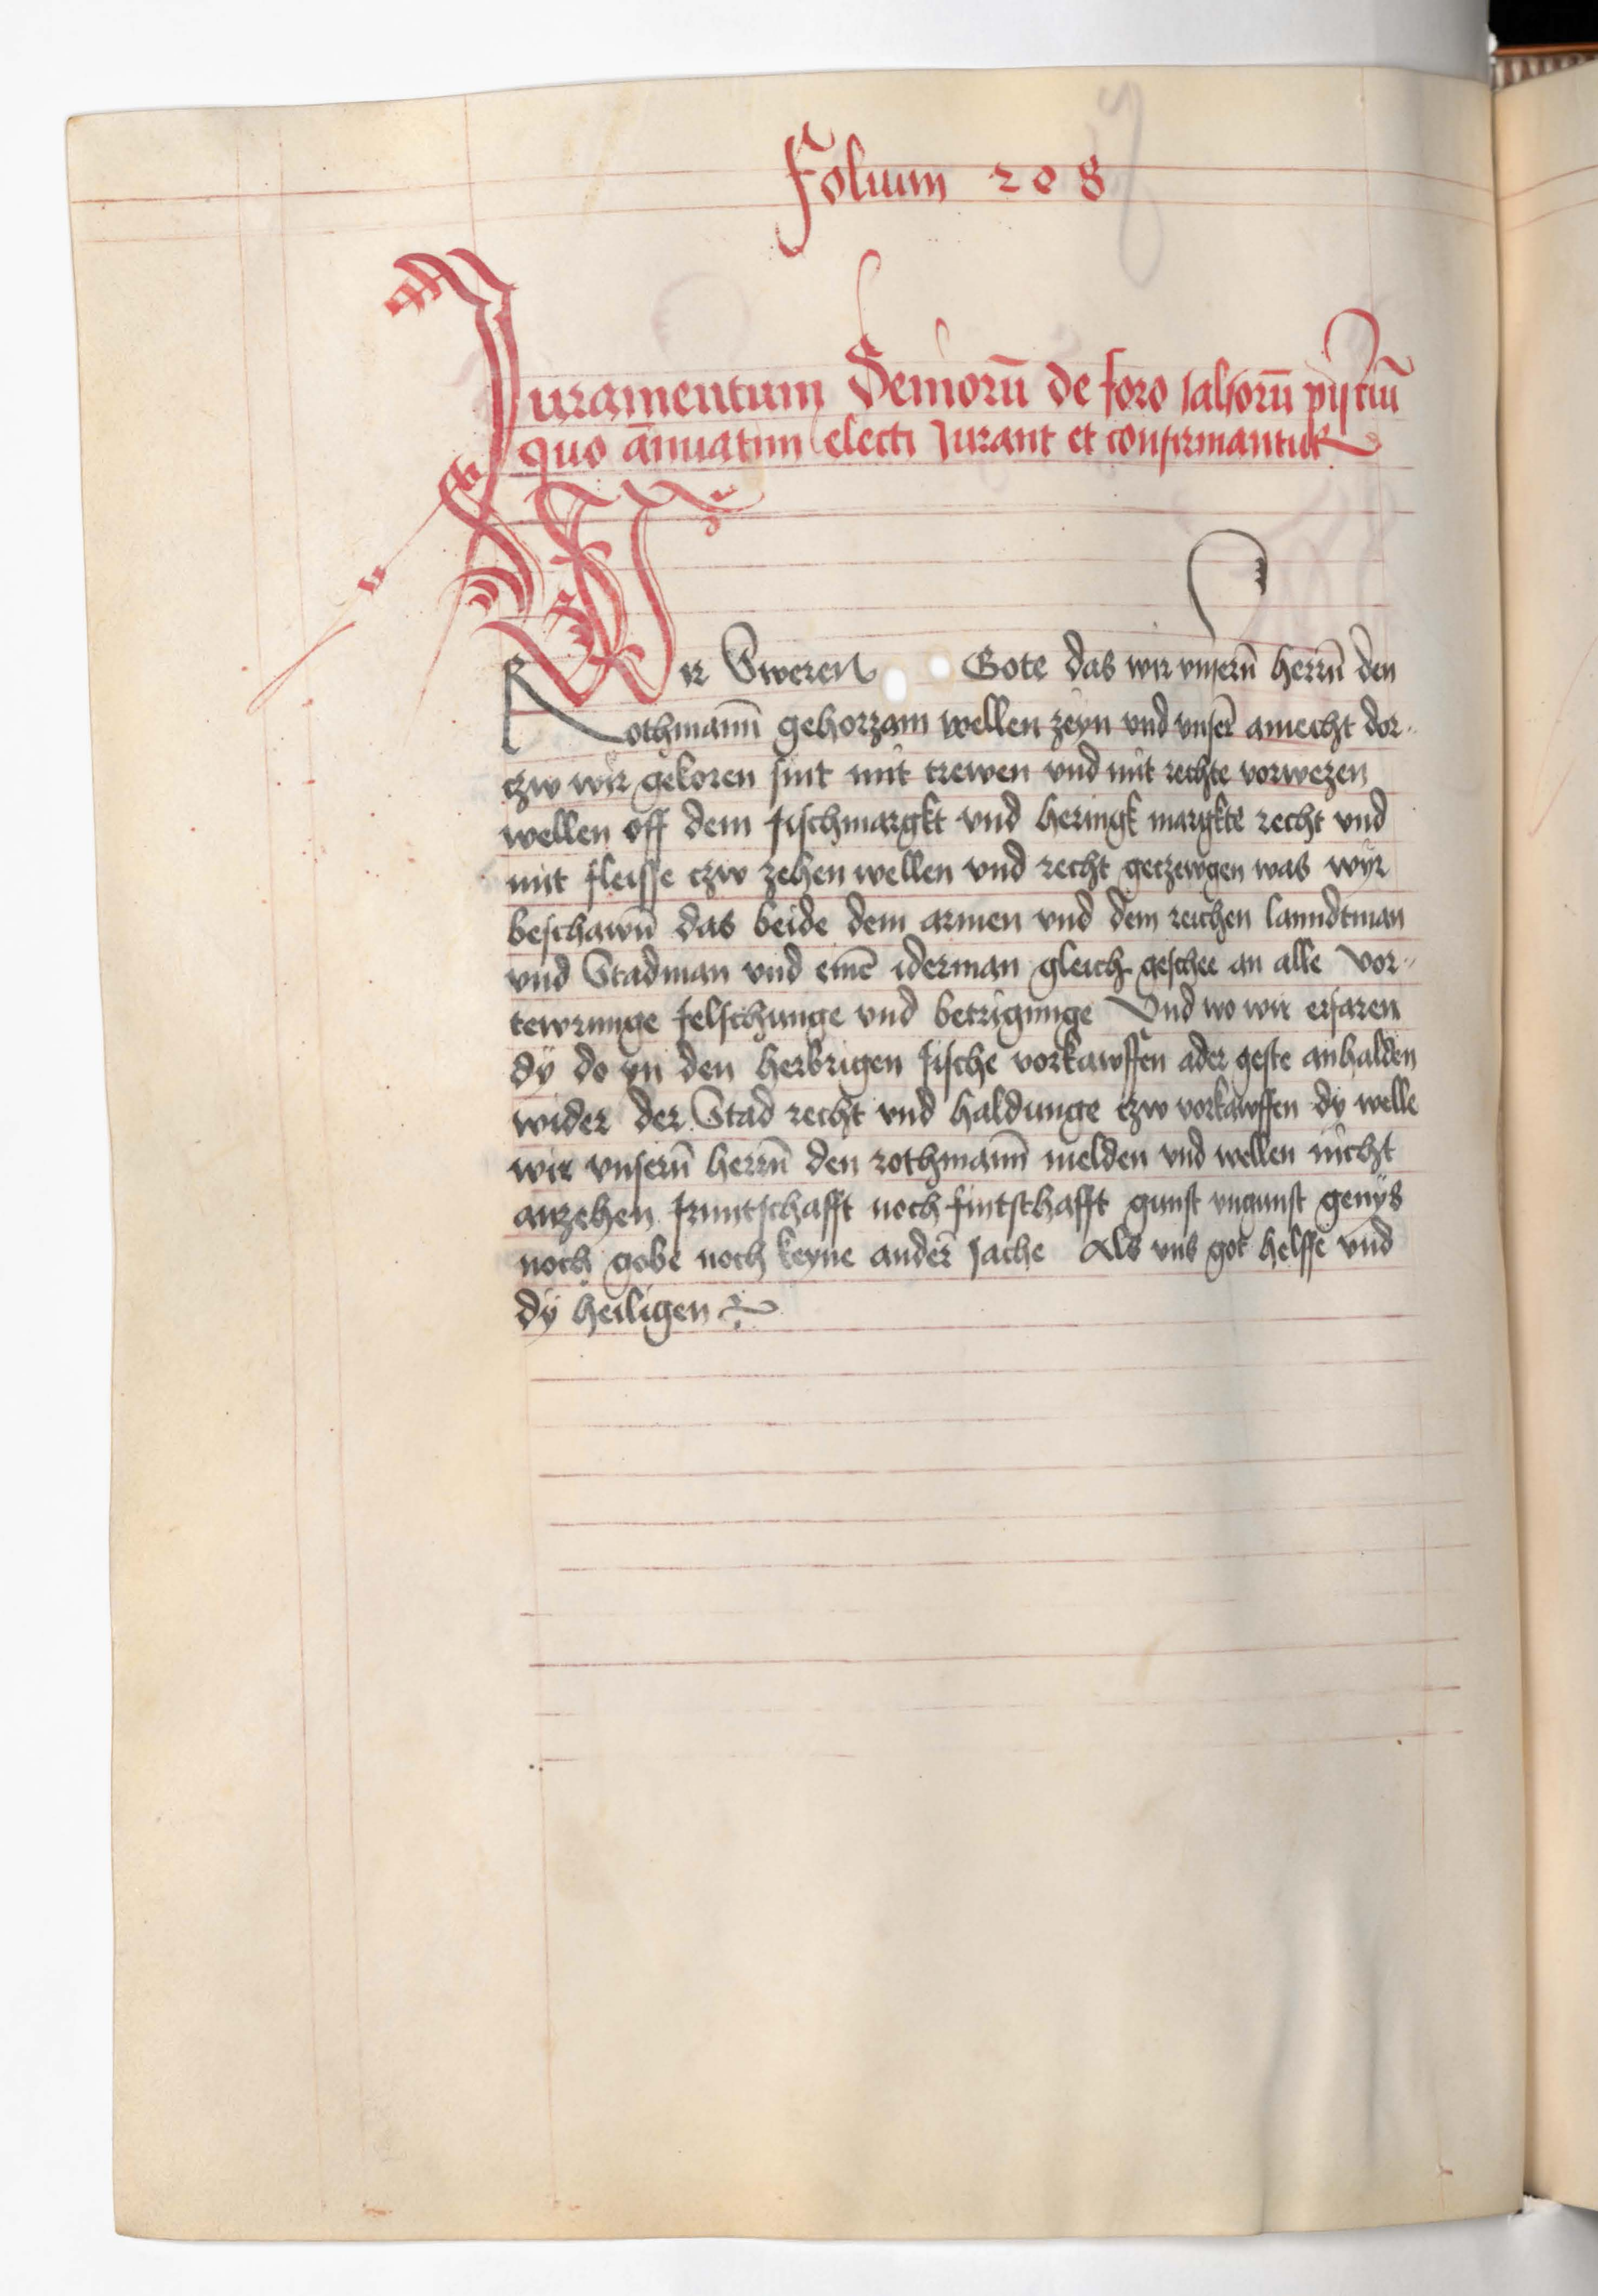 Folium 208
Juramentum Seniorū de foro salsorū pisciū
quo ānuatim electi Jurant et confirmantur
Wir Sweren Gote das wir vnserñ herrñ den
Rothmann̄ gehorzam wellen zeyn vnd vnser̄ amecht dor-
czw wir gekoren sint mit trewen vnd mit rechte vorwezen
wellen off dem fischmargkt vnd heringk margkte recht vnd
mit fleisse czw zehen wellen vnd recht geczewgen was wyr
beschawn̄ das beide dem armen vnd dem reichen lanndtman
vnd Stadman vnd eine͞ iderman gleich geschee an alle vor-
tewrunge felschunge vnd betrigunge Vnd wo wir erfaren
dÿ do yn den herbrigen fische vorkawffen ader geste anhalden
wider der Stad recht vnd haldunge czw vorkawffen dy welle
wir vnserñ herrñ den rothmann̄ melden vnd wellen nicht
anzehen fruntschafft noch fintschafft gunst vngunst genÿs
noch gobe noch keyne ander̄ sache Als vns got helffe vnd
dÿ heiligen